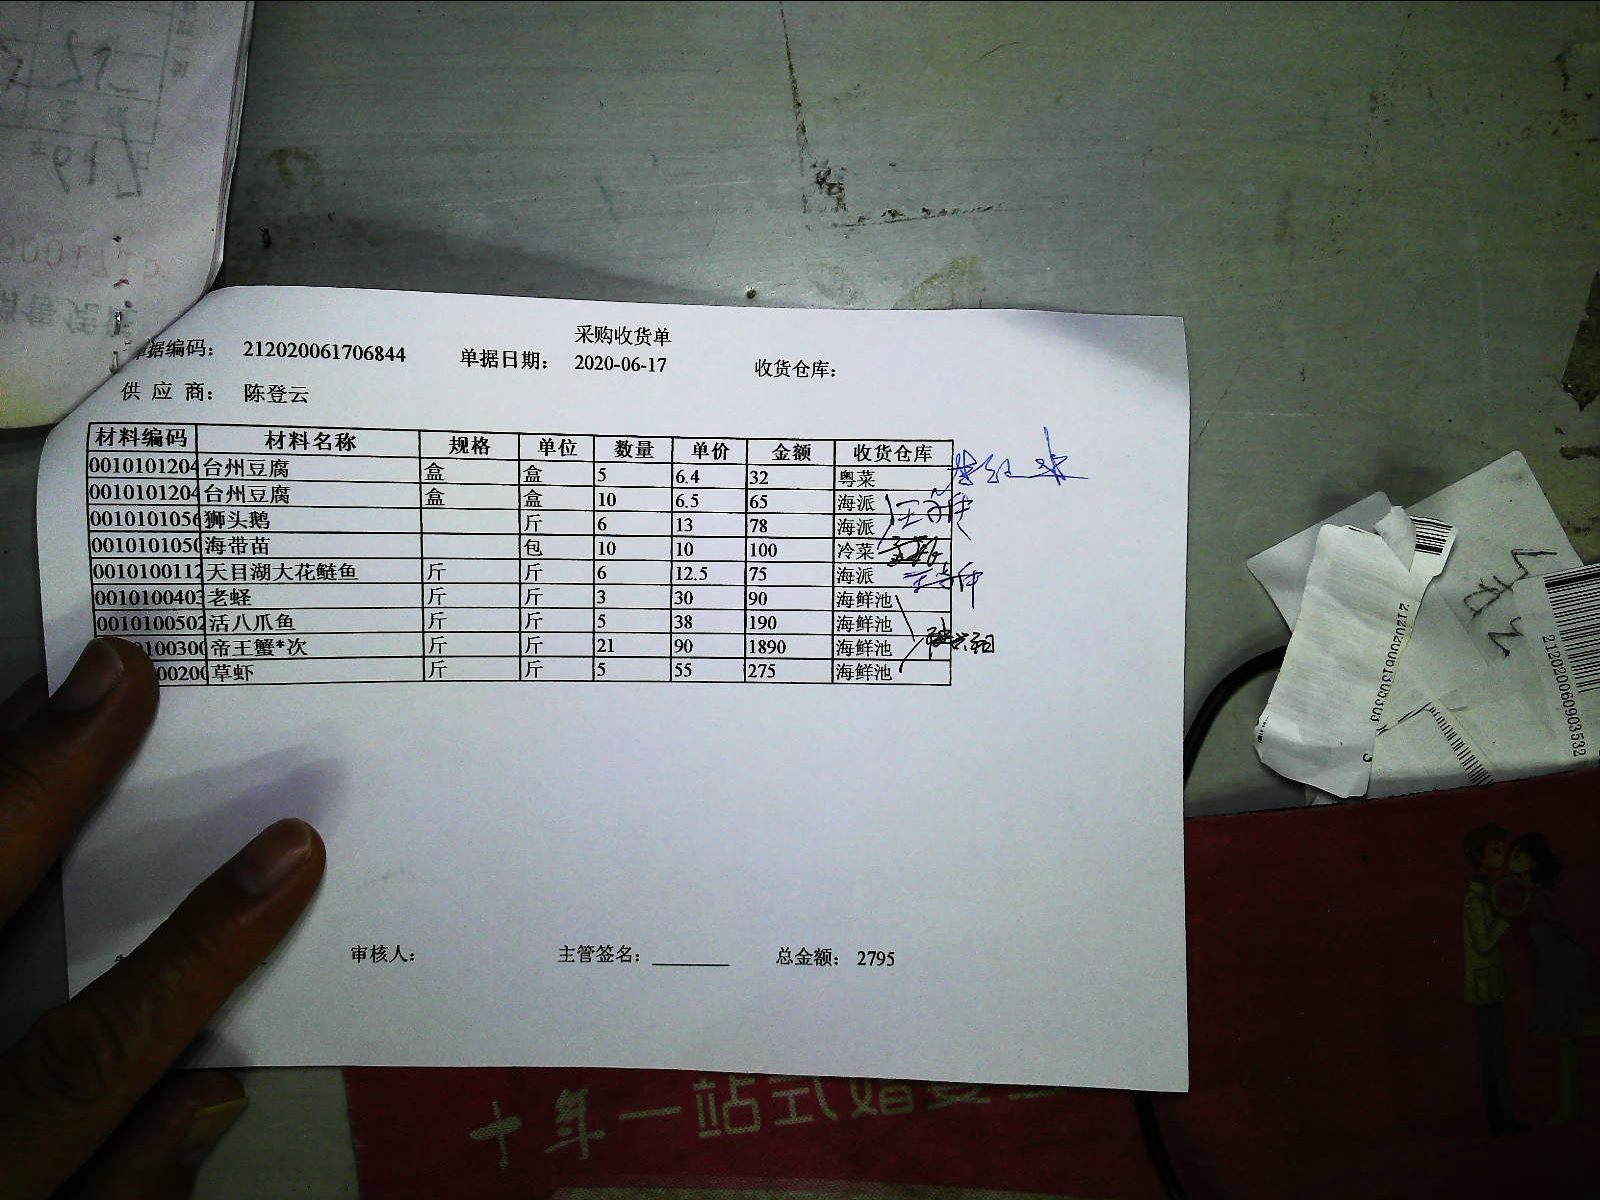 采购收货单
单据编码： 212020061706844 单据日期： 2020-06-17 收货仓库：
供 应 商： 陈登云
材料编码 材料名称 规格 单位 数量 单价 金额 收货仓库
0010101204 台州豆腐 盒 盒 5 6.4 32 粤菜
0010101204 台州豆腐 盒 盒 10 6.5 65 海派
001010105 狮头鹅 斤 6 13 78 海派
001010105 海带苗 包 10 10 100 冷菜
0010100112 天目湖大花鲢鱼 斤 斤 6 12.5 75 海派
001010040 老蛏 斤 斤 3 30 90 海鲜池
0010100502 活八爪鱼 斤 斤 5 38 190 海鲜池
0100300 帝王蟹*次 斤 斤 21 90 1890 海鲜池
00200 草虾 斤 斤 5 55 275 海鲜池
审核人： 主管签名： 总金额： 2795
212020061305303
212020060903532
十年一站式婚